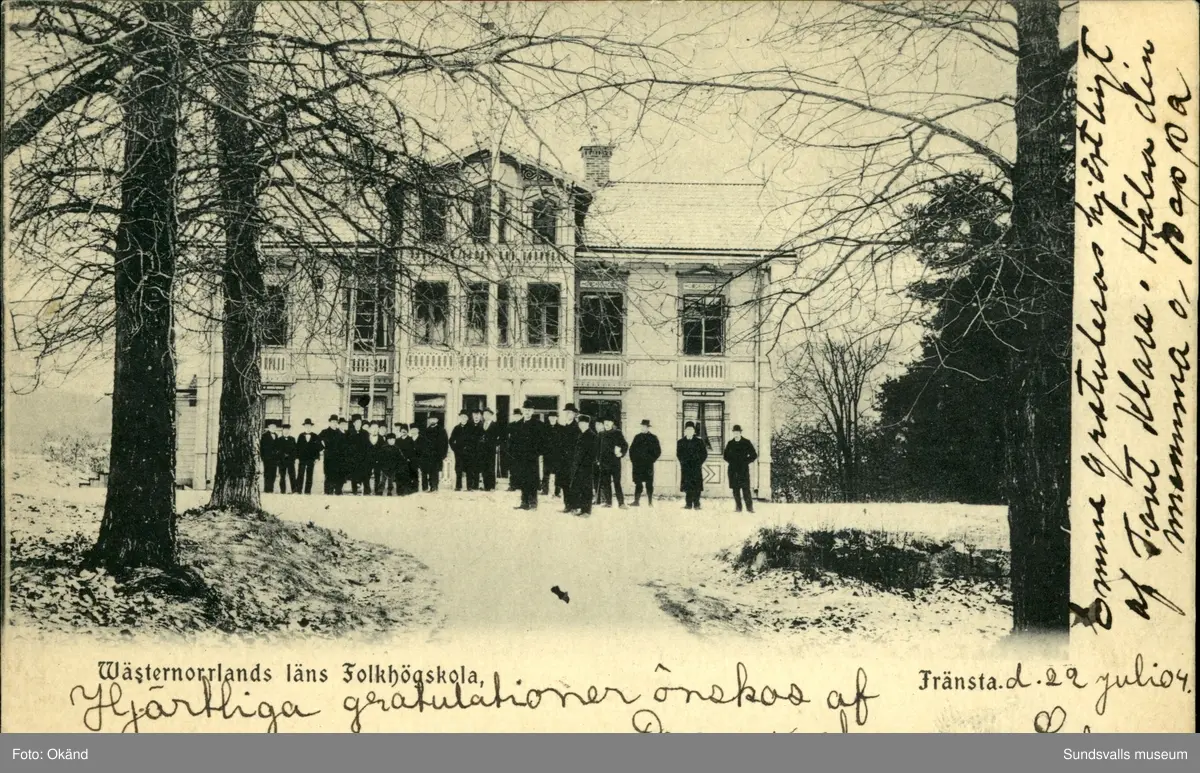 Emma gratuleras hjärtligt
af Tant Klara. Hälsa din
mamma o. pappa
Wästernorrlands läns Folkhögskola,
Fränsta. d. 22 juli 04.
Hjärtliga gratulationer önskas af
Foto: Okänd
Sundsvalls museum